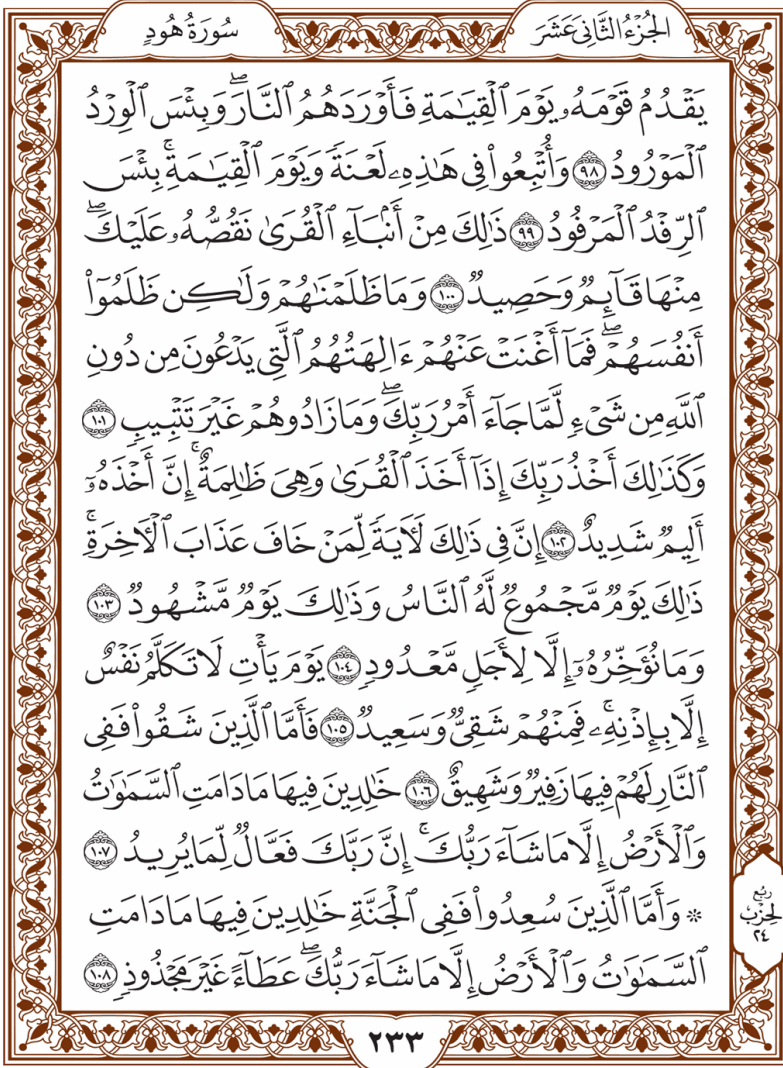 الجُزْءُ الثَّانِي عَشَرَ
سُورَةُ هُودٍ
يَقْدُمُ قَوْمَهُۥ يَوْمَ ٱلْقِيَـٰمَةِ فَأَوْرَدَهُمُ ٱلنَّارَۖ وَبِئْسَ ٱلْوِرْدُ
ٱلْمَوْرُودُ ٩٨ وَأُتْبِعُوا۟ فِى هَـٰذِهِۦ لَعْنَةً وَيَوْمَ ٱلْقِيَـٰمَةِۚ بِئْسَ
ٱلرِّفْدُ ٱلْمَرْفُودُ ٩٩ ذَٰلِكَ مِنْ أَنۢبَآءِ ٱلْقُرَىٰ نَقُصُّهُۥ عَلَيْكَۖ
مِنْهَا قَآئِمٌ وَحَصِيدٌ ١٠٠ وَمَا ظَلَمْنَـٰهُمْ وَلَـٰكِن ظَلَمُوٓا۟
أَنفُسَهُمْۖ فَمَآ أَغْنَتْ عَنْهُمْ ءَالِهَتُهُمُ ٱلَّتِى يَدْعُونَ مِن دُونِ
ٱللَّهِ مِن شَىْءٍ لَّمَّا جَآءَ أَمْرُ رَبِّكَۖ وَمَا زَادُوهُمْ غَيْرَ تَتْبِيبٍ ١٠١
وَكَذَٰلِكَ أَخْذُ رَبِّكَ إِذَآ أَخَذَ ٱلْقُرَىٰ وَهِىَ ظَـٰلِمَةٌۚ إِنَّ أَخْذَهُۥٓ
أَلِيمٌ شَدِيدٌ ١٠٢ إِنَّ فِى ذَٰلِكَ لَـَٔايَةً لِّمَنْ خَافَ عَذَابَ ٱلْـَٔاخِرَةِۚ
ذَٰلِكَ يَوْمٌ مَّجْمُوعٌ لَّهُ ٱلنَّاسُ وَذَٰلِكَ يَوْمٌ مَّشْهُودٌ ١٠٣
وَمَا نُؤَخِّرُهُۥٓ إِلَّا لِأَجَلٍ مَّعْدُودٍ ١٠٤ يَوْمَ يَأْتِ لَا تَكَلَّمُ نَفْسٌ
إِلَّا بِإِذْنِهِۦۚ فَمِنْهُمْ شَقِىٌّ وَسَعِيدٌ ١٠٥ فَأَمَّا ٱلَّذِينَ شَقُوا۟ فَفِى
ٱلنَّارِ لَهُمْ فِيهَا زَفِيرٌ وَشَهِيقٌ ١٠٦ خَـٰلِدِينَ فِيهَا مَا دَامَتِ ٱلسَّمَـٰوَٰتُ
وَٱلْأَرْضُ إِلَّا مَا شَآءَ رَبُّكَۚ إِنَّ رَبَّكَ فَعَّالٌ لِّمَا يُرِيدُ ١٠٧
* وَأَمَّا ٱلَّذِينَ سُعِدُوا۟ فَفِى ٱلْجَنَّةِ خَـٰلِدِينَ فِيهَا مَا دَامَتِ
ٱلسَّمَـٰوَٰتُ وَٱلْأَرْضُ إِلَّا مَا شَآءَ رَبُّكَۖ عَطَآءً غَيْرَ مَجْذُوذٍ ١٠٨
رُبْع
الحِزْب
٢٤
٢٣٣